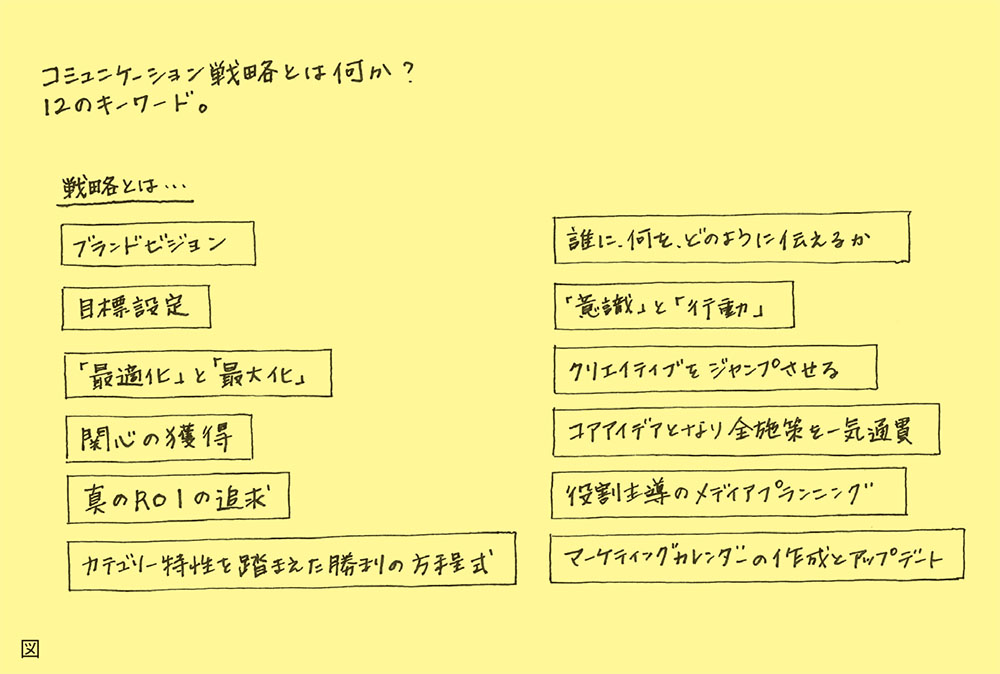 コミュニケーション戦略とは何か?
12のキーワード。
戦略とは…
ブランドビジョン
目標設定
「最適化」と「最大化」
関心の獲得
真のROIの追求
カテゴリー特性を踏まえた勝利の方程式
誰に、何を、どのように伝えるか
「意識」と「行動」
クリエイティブをジャンプさせる
コアアイデアとなり全施策を一気通貫
役割主導のメディアプランニング
マーケティングカレンダーの作成とアップデート
図